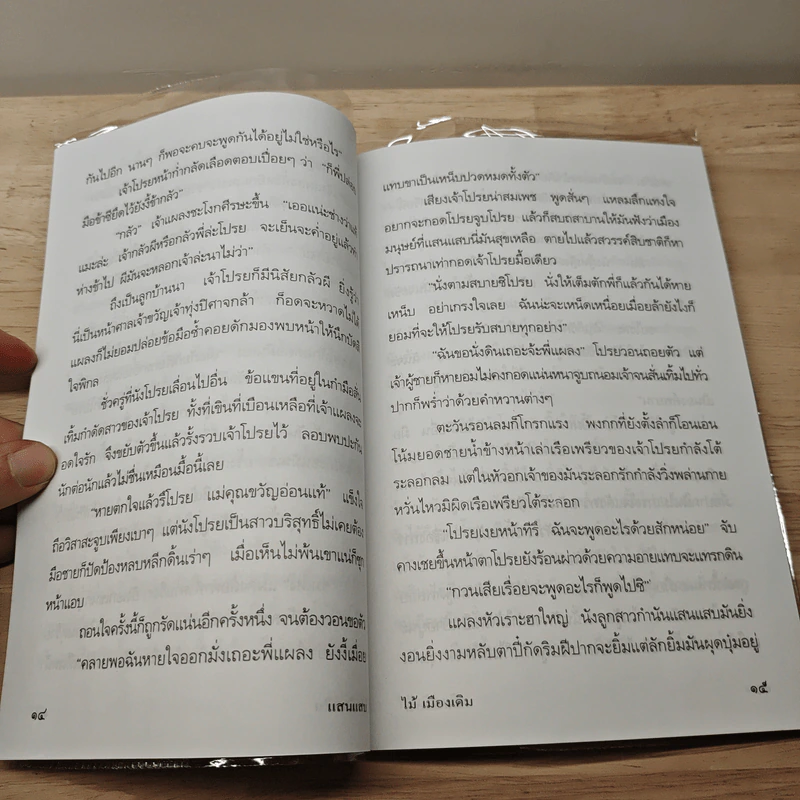 กันไปอีก นานๆ ก็พอจะคบจะพูดกันได้อยู่ไม่ใช่หรือไร"
เจ้าโปรยหน้าก่ำกลัดเลือดตอบเปื่อยๆ ว่า "ก็พี่ปล่อย
มือข้าซียึดไว้ยังงี้ข้ากลัว"
"กลัว" เจ้าแผลงชะโงกศีรษะขึ้น "เออแน่ะช่างว่าแล้
แมะล่ะ เจ้ากลัวผีหรือกลัวพี่ล่ะโปรย จะเย็นจะค่ำอยู่แล้วค่ำ
ห่างข้าไป ผีมันจะหลอกเจ้าล่ะนาไม่ว่า"
ถึงเป็นลูกบ้านนา เจ้าโปรยก็มีนิสัยกลัวผี ยิ่งรู้ว่า
นี่เป็นหน้าศาลเจ้าขวัญเจ้าทุ่งปีศาจกล้า ก็อดจะหวาดไม่ได้
แผลงก็ไม่ยอมปล่อยข้อมือซ้ำคอยดักมองพบหน้าให้นึกบัดสี
ใจพิกล
ชั่วครู่ที่นังโปรยเลื่อนไปอื่น ข้อแขนที่อยู่ในกำมือสั่น
เทิ้มกำดัดสาวของเจ้าโปรย ทั้งที่เขินที่เบือนเหลือที่เจ้าแผลงจะ
อดใจรัก จึงขยับตัวขึ้นแล้วรั้งรวบเจ้าโปรยไว้ ลอบพบปะกัน
นักต่อนักแล้วไม่ชื่นเหมือนมื้อนี้เลย
"หายตกใจแล้วรึโปรย แม่คุณขวัญอ่อนแท้" แข็งใจ
ถือวิสาสะจูบเพียงเบาๆ แต่นังโปรยเป็นสาวบริสุทธิ์ไม่เคยต้อง
มือชายก็ปัดป้องหลบหลีกดิ้นเร่าๆ เมื่อเห็นไม่พ้นเขาแน่ก็ซุก
หน้าแอบ
ถอนใจครั้งนี้ก็ถูกรัดแน่นอีกครั้งหนึ่ง จนต้องวอนขอตัว
"คลายพอฉันหายใจออกมั่งเถอะพี่แผลง ยังงี้เมื่อย
๑๔
แสนแสบ
แทบขาเป็นเหน็บปวดหมดทั้งตัว"
เสียงเจ้าโปรยน่าสมเพช พูดสั่นๆ แหลมลึกแทงใจ
อยากจะกอดโปรยจูบโปรย แล้วก็สบถสาบานให้มันฟังว่าเมือง
มนุษย์ที่แสนแสบนี่มันสุขเหลือ ตายไปแล้วสวรรค์สิบชาติก็หา
ปรารถนาเท่ากอดเจ้าโปรยมื้อเดียว
"นั่งตามสบายซิโปรย นั่งให้เต็มตักพี่ก็แล้วกันได้หาย
เหน็บ อย่าเกรงใจเลย ฉันน่ะจะเหน็ดเหนื่อยเมื่อยล้ายังไงก็
ยอมที่จะให้โปรยรับสบายทุกอย่าง"
"ฉันขอนั่งดินเถอะจ้ะพี่แผลง" โปรยวอนถอยตัว แต่
เจ้าผู้ชายก็หายอมไม่คงกอดแน่นหนาจูบถนอมเจ้าจนสั่นเทิ้มไปทั่ว
ปากก็พร่ำว่าด้วยคำหวานต่างๆ
ตะวันรอนลมก็โกรกแรง พงกกที่ยังตั้งลำก็โอนเอน
โน้มยอดชายน้ำข้างหน้าเล่าเรือเพรียวของเจ้าโปรยกำลังโต้
ระลอกลม แต่ในหัวอกเจ้าของมันระลอกรักกำลังวิ่งพล่านกาย
หวั่นไหวมิผิดเรือเพรียวโต้ระลอก
"โปรยเงยหน้าทีรึ ฉันจะพูดอะไรด้วยสักหน่อย" จับ
คางเชยขึ้นหน้าตาโปรยยังร้อนผ่าวด้วยความอายแทบจะแทรกดิน
"กวนเสียเรื่อยจะพูดอะไรก็พูดไปซิ"
แผลงหัวเราะฮาใหญ่ นังลูกสาวกำนันแสนแสบมันยิ่ง
งอนยิ่งงามหลับตาปี๋กัดริมฝีปากจะยิ้มแต่ลักยิ้มมันผุดบุ๋มอยู่
ไม้ เมืองเดิม
๑๕